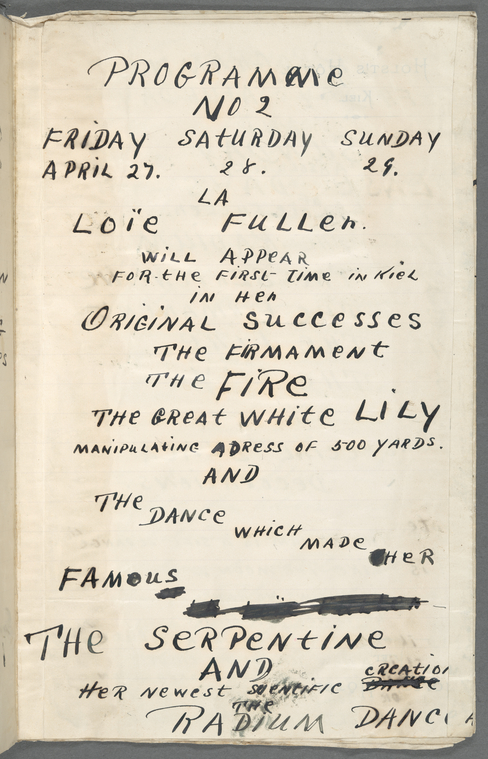 PROGRAMME
NO 2
FRIDAY SATURDAY SUNDAY
APRIL 27. 28. 29.
LA
LOÏE FULLER.
WILL APPEAR
FOR THE FIRST TIME IN KIEL
IN HER
ORIGINAL SUCCESSES
THE FIRMAMENT
THE FIRE
THE GREAT WHITE LILY
MANIPULATING ADRESS OF 500 YARDS.
AND
THE DANCE WHICH MADE HER
FAMOUS
THE SERPENTINE
AND
HER NEWEST SCIENCIFIC CREATION
THE
RADIUM DANCE